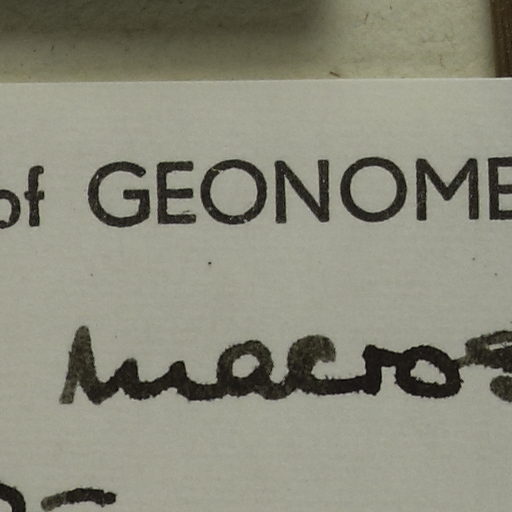 of GEONOME
macros